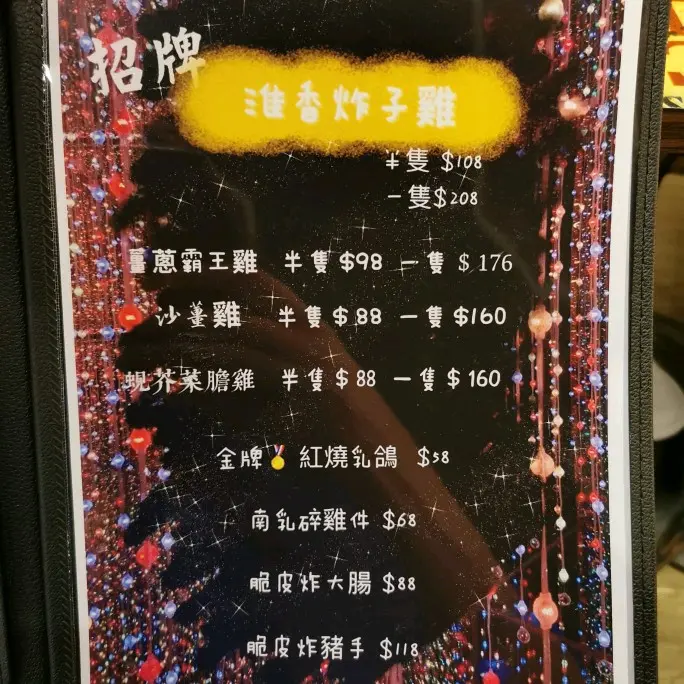 招牌
淮香炸子雞
半隻 $108
一隻$208
薑蔥霸王雞 半隻 $98 一隻 $ 176
沙薑雞 半隻 $ 88 一隻 $160
蜆芥菜膽雞 半隻 $ 88 一隻 $ 160
金牌🏅 紅燒乳鴿 $58
南乳碎雞件 $68
脆皮炸大腸 $88
脆皮炸豬手 $118